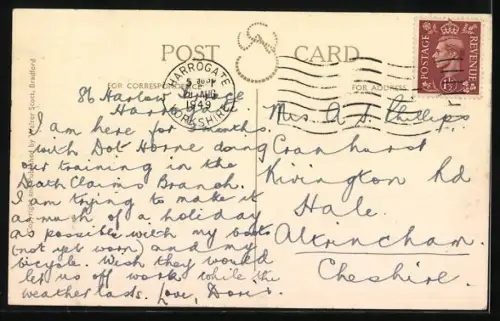 POST CARD
FOR CORRESPONDENCE
FOR ADDRESS
HARROGATE
AUG
1949
YORKSHIRE
POSTAGE
REVENUE
86 Harlow
Harrogate
I am here for months
with Dot Horne doing
our training in the
Death Claims Branch.
I am trying to make it
as much of a holiday
as possible with my boots
(not yet worn) and my
bicycle. Wish they would
let us off work while the
weather lasts. Love, Doris.
Mrs A. S. Phillips
Cranhurst
Rivington Rd
Hale.
Altrincham.
Cheshire.
Walter Scott, Bradford